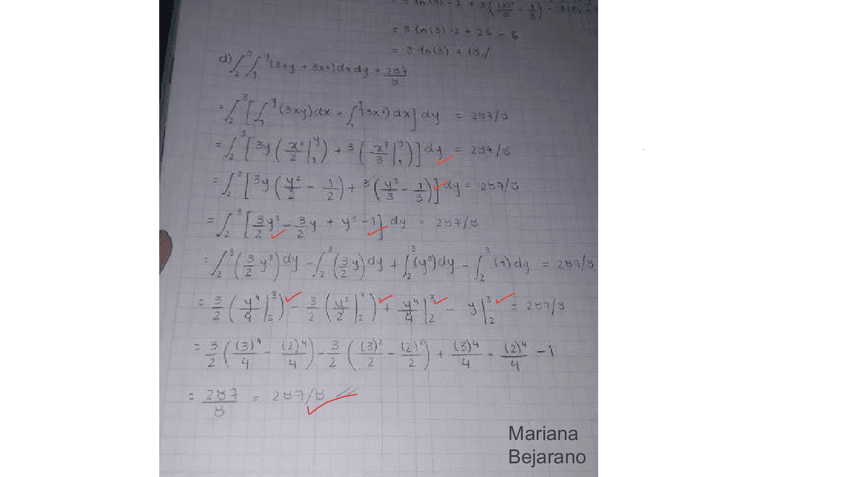 = 3 ln(3) - 2 + 26 - 6
= 3 ln(3) + 18
d) ∫₂³ ∫₁ʸ (3xy + 3x²) dx dy = 287/8
= ∫₂³ [∫₁ʸ (3xy) dx + ∫₁ʸ (3x²) dx] dy = 287/8
= ∫₂³ [3y (x²/2 |₁ʸ) + 3 (x³/3 |₁ʸ)] dy = 287/8
= ∫₂³ [3y (y²/2 - 1/2) + 3 (y³/3 - 1/3)] dy = 287/8
= ∫₂³ [3/2 y³ - 3/2 y + y³ - 1] dy = 287/8
= ∫₂³ (3/2 y³) dy - ∫₂³ (3/2 y) dy + ∫₂³ (y³) dy - ∫₂³ (1) dy = 287/8
= 3/2 (y⁴/4 |₂³) - 3/2 (y²/2 |₂³) + y⁴/4 |₂³ - y |₂³ = 287/8
= 3/2 ((3)⁴/4 - (2)⁴/4) - 3/2 ((3)²/2 - (2)²/2) + (3)⁴/4 - (2)⁴/4 - 1
= 287/8 = 287/8
Mariana
Bejarano